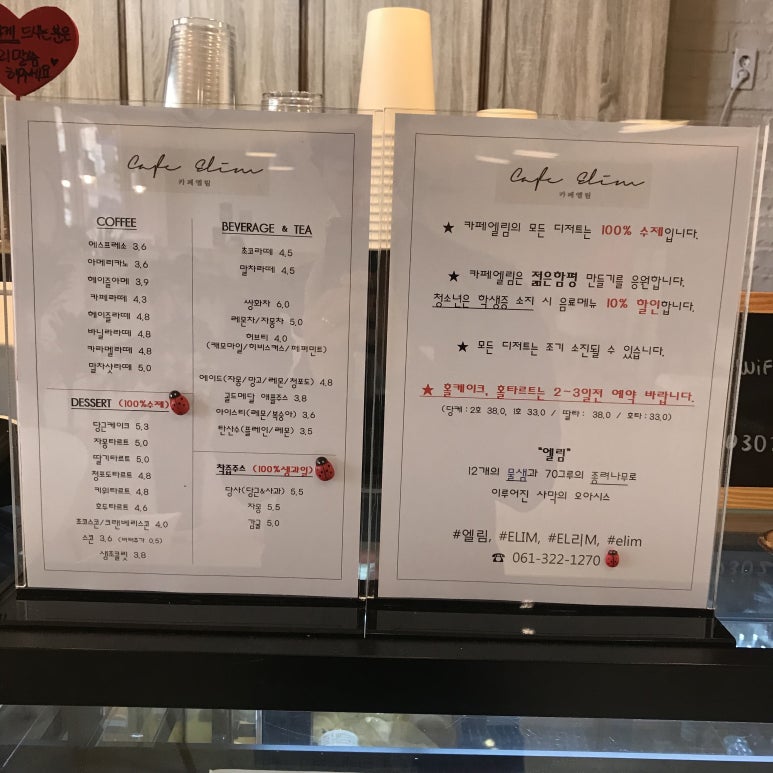 드시는분은
Cafe Elim
카페엘림
COFFEE
에스프레소 3,6
아메리카노 3,6
헤이즐아메 3,9
카페라떼 4,3
헤이즐라떼 4,8
바닐라라떼 4,8
카라멜라떼 4,8
말차샷라떼 5,0
DESSERT (100%수제)
당근케이크 5,3
자몽타르트 5,0
딸기타르트 5,0
청포도타르트 4,8
키위타르트 4,8
호두타르트 4,6
초코스콘/크랜베리스콘 4,0
스콘 3,6 (버터추가 0,5)
생초콜릿 3,8
BEVERAGE & TEA
초코라떼 4,5
말차라떼 4,5
쌍화차 6,0
레몬차/자몽차 5,0
허브티 4,0
(캐모마일/히비스커스/페퍼민트)
에이드(자몽/망고/레몬/청포도) 4,8
골드메달 애플주스 3,8
아이스티(레몬/복숭아) 3,6
탄산수(플레인/레몬) 3,5
착즙주스 (100%생과일)
당사(당근&사과) 5,5
자몽 5,5
감귤 5,0
Cafe Elim
카페엘림
★ 카페엘림의 모든 디저트는 100% 수제입니다.
★ 카페엘림은 젊은함평 만들기를 응원합니다.
청소년은 학생증 소지 시 음료메뉴 10% 할인합니다.
★ 모든 디저트는 조기 소진될 수 있습니다.
★ 홀케이크, 홀타르트는 2-3일전 예약 바랍니다.
(당케: 2호 38,0, 1호 33,0 / 딸타: 38,0 / 호타: 33,0)
"엘림"
12개의 물샘과 70그루의 종려나무로
이루어진 사막의 오아시스
#엘림, #ELIM, #EL리M, #elim
☎ 061-322-1270